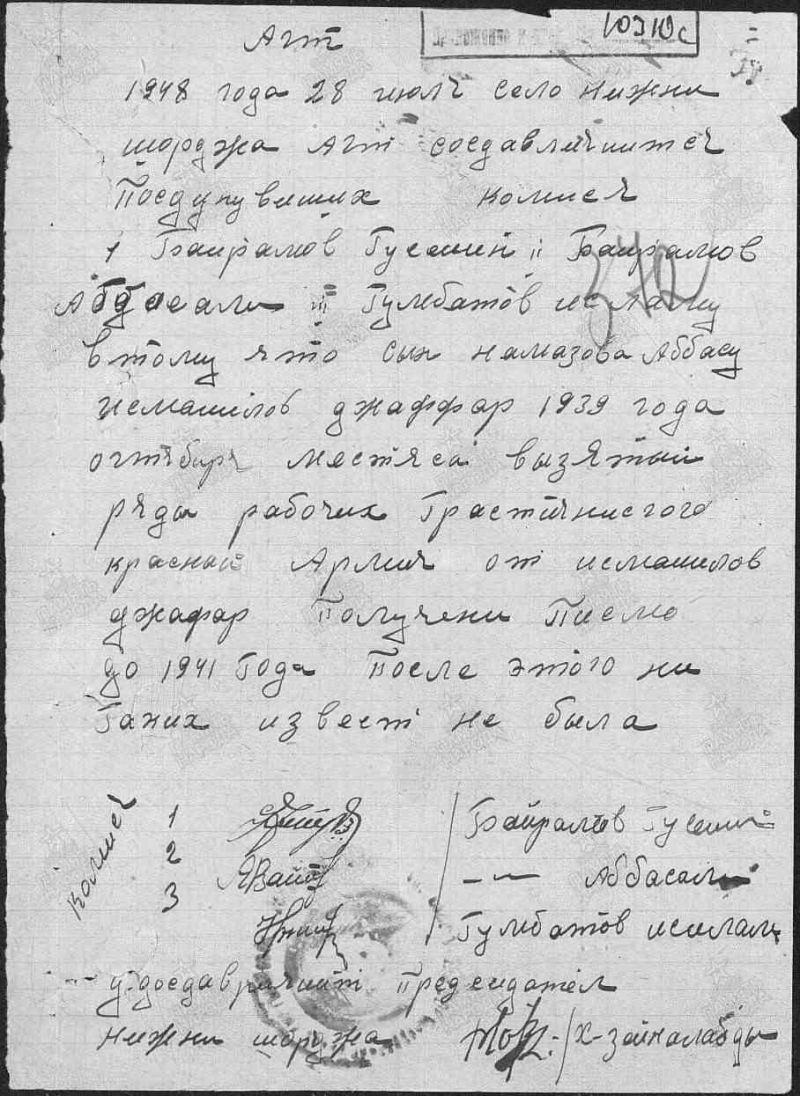 10310с
Агт
1948 года 28 июля село нижни
шорджа Агт соедавличитеч
Поедупувших комисч
1 Баирамов Гусеин || Баирамов
372
Аббасали ||| Гумбатов ислами
в тому что сын намазова Аббасу
исмаилов джаффар 1939 года
огтябиря местяса вызятый
ряды рабочих Грастичнисгого
красный Армич от исмаилов
джафар Получени Писмо
до 1941 года После этого ни
Гаких извест не была
комисч
1 Байрамов Гусеин
2 -"- Аббасали
3 Гумбатов исмлам
Председател
нижни шорджа Х-зайналабды